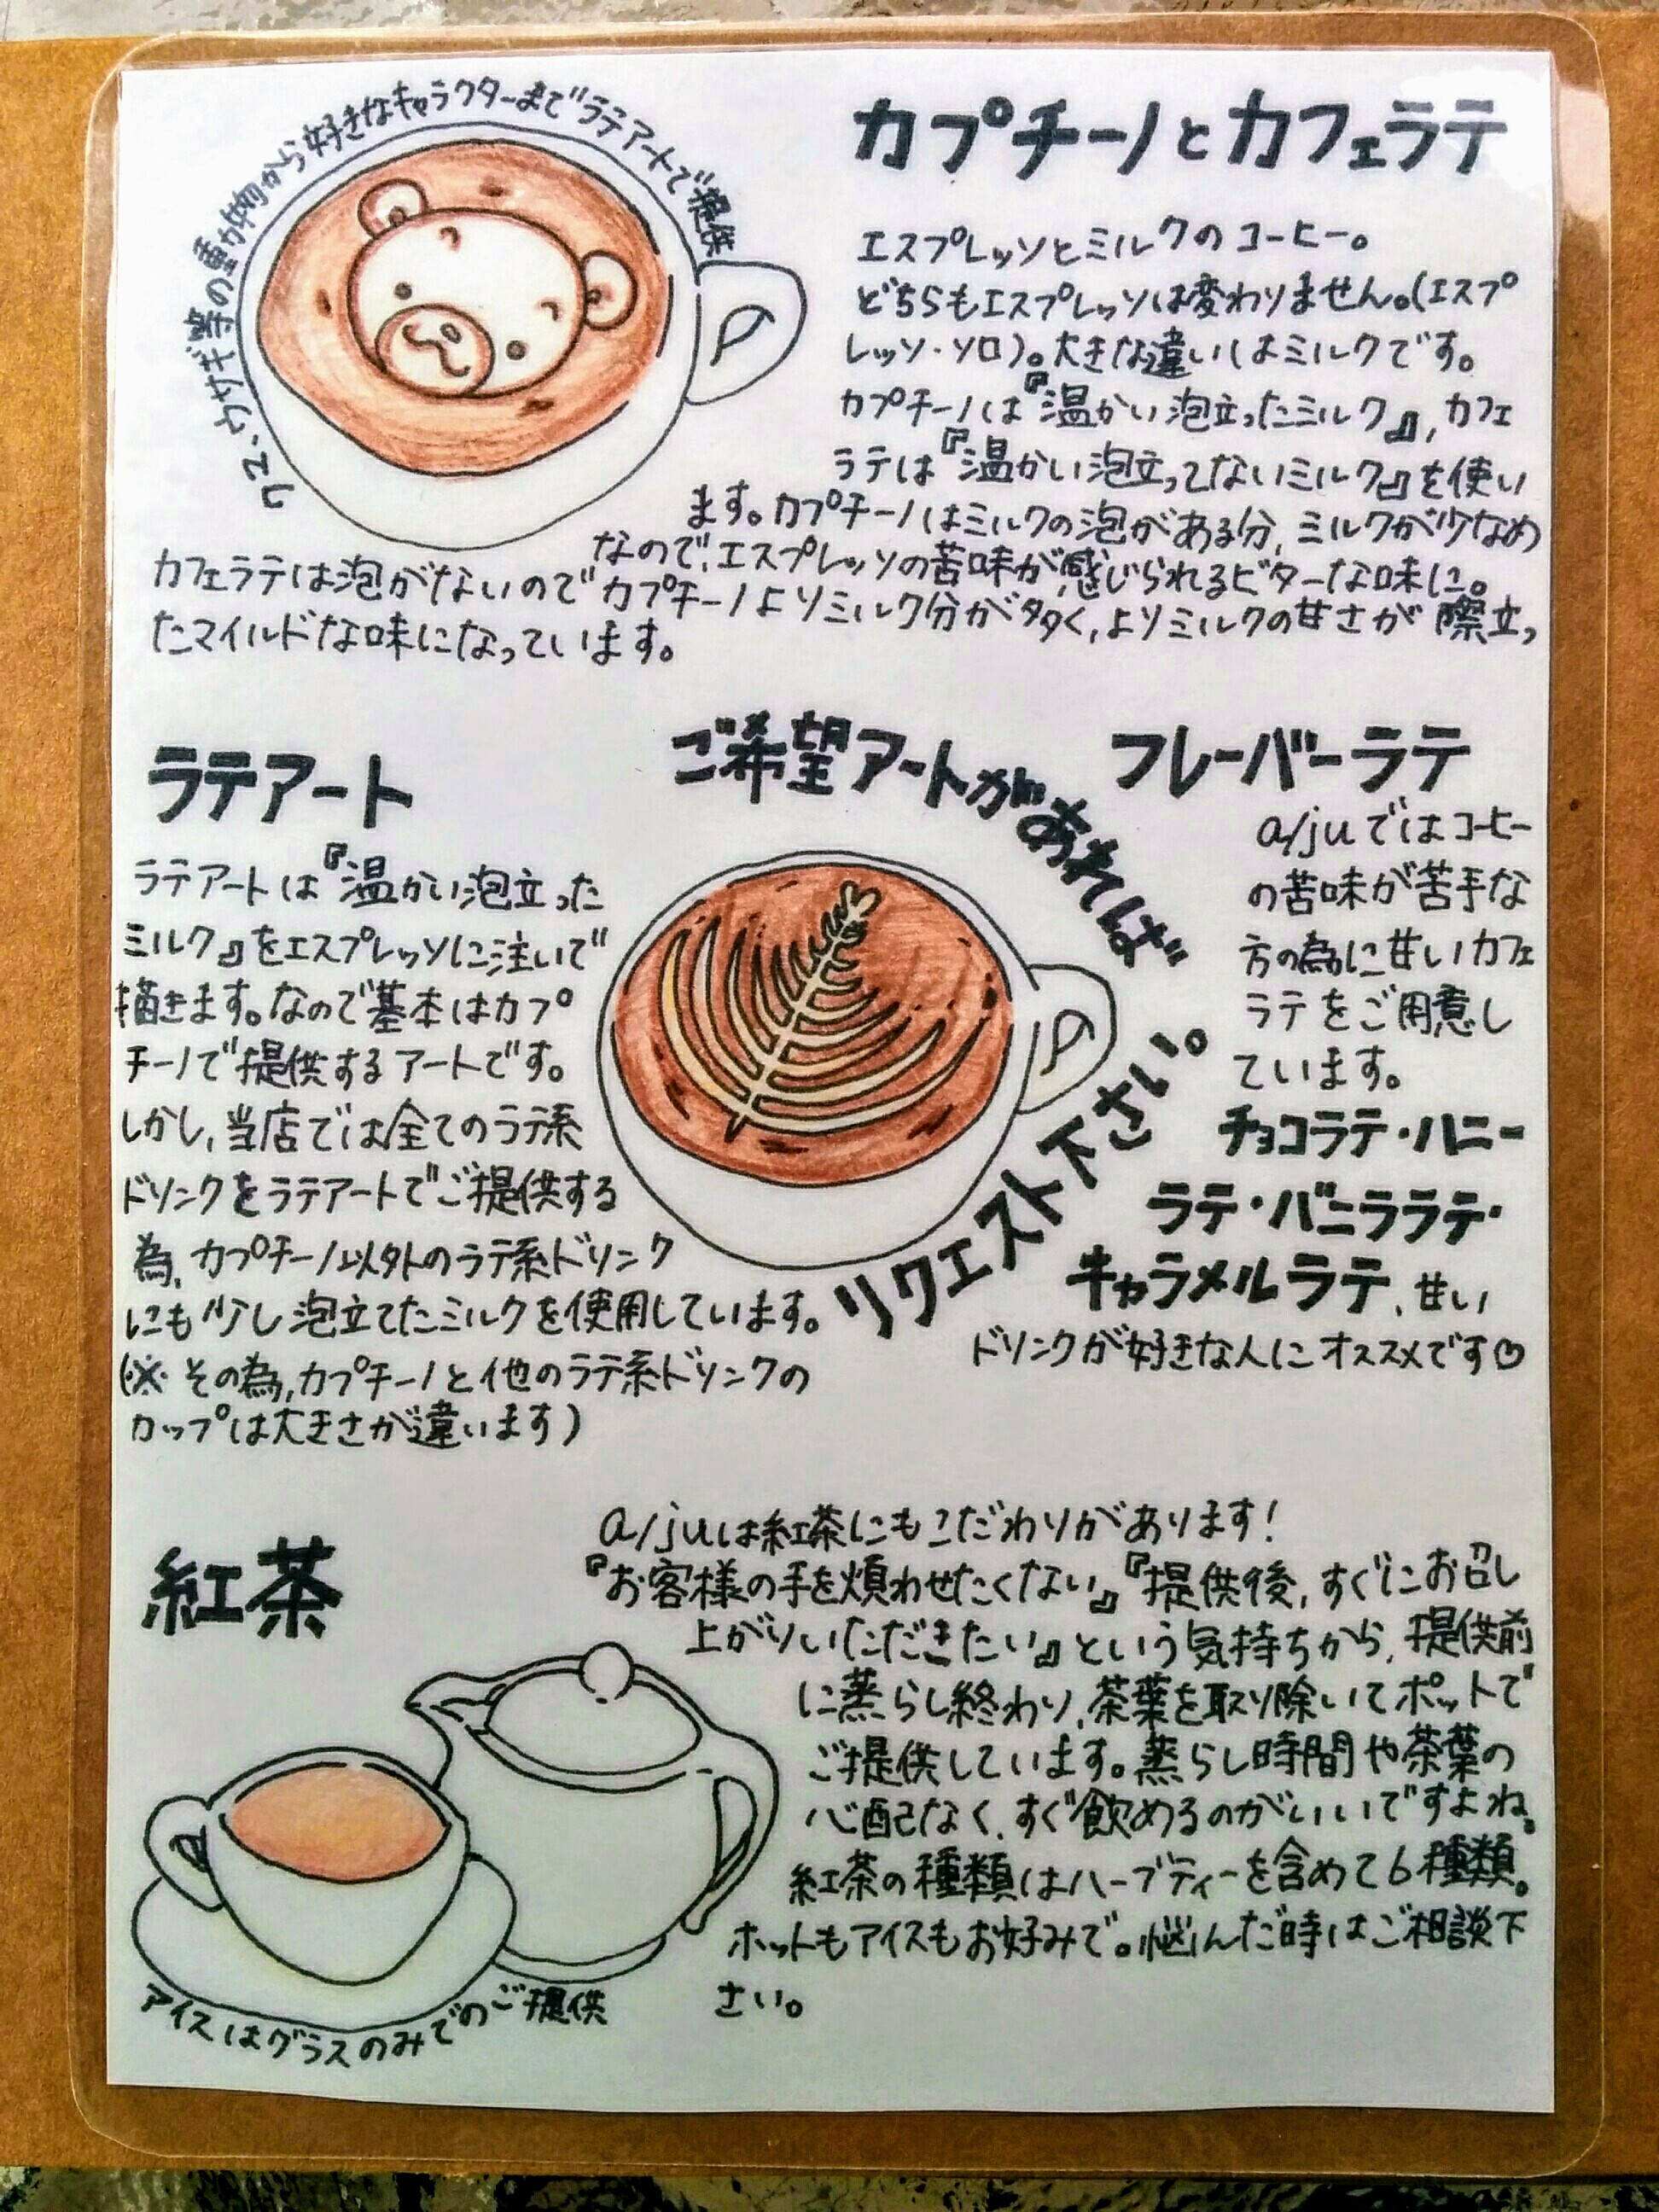 クマ、ウサギ等の動物から好きなキャラクターまでラテアートで提供
カプチーノとカフェラテ
エスプレッソとミルクのコーヒー。
どちらもエスプレッソは変わりません。(エスプ
レッソ・ソロ)。大きな違いはミルクです。
カプチーノは『温かい泡立ったミルク』,カフェ
ラテは『温かい泡立ってないミルク』を使い
ます。カプチーノはミルクの泡がある分,ミルクが少なめ
なので,エスプレッソの苦味が感じられるビターな味に。
カフェラテは泡がないのでカプチーノよりミルク分が多く,よりミルクの甘さが際立っ
たマイルドな味になっています。
ラテアート
ラテアートは『温かい泡立った
ミルク』をエスプレッソに注いで
描きます。なので基本はカプ
チーノで提供するアートです。
しかし,当店では全てのラテ系
ドリンクをラテアートでご提供する
為,カプチーノ以外のラテ系ドリンク
にも少し泡立てたミルクを使用しています。
(※その為,カプチーノと他のラテ系ドリンクの
カップは大きさが違います)
ご希望アートがあれば
リクエスト下さい。
フレーバーラテ
a/juではコーヒー
の苦味が苦手な
方の為に甘いカフェ
ラテをご用意し
ています。
チョコラテ・ハニー
ラテ・バニララテ・
キャラメルラテ、甘い
ドリンクが好きな人にオススメです♡
紅茶
a/juは紅茶にもこだわりがあります!
『お客様の手を煩わせたくない』『提供後,すぐにお召し
上がりいただきたい』という気持ちから,提供前
に蒸らし終わり,茶葉を取り除いてポットで
ご提供しています。蒸らし時間や茶葉の
心配なく,すぐ飲めるのがいいですよね。
紅茶の種類はハーブティーを含めて6種類。
ホットもアイスもお好みで。悩んだ時はご相談下
さい。
アイスはグラスのみでのご提供